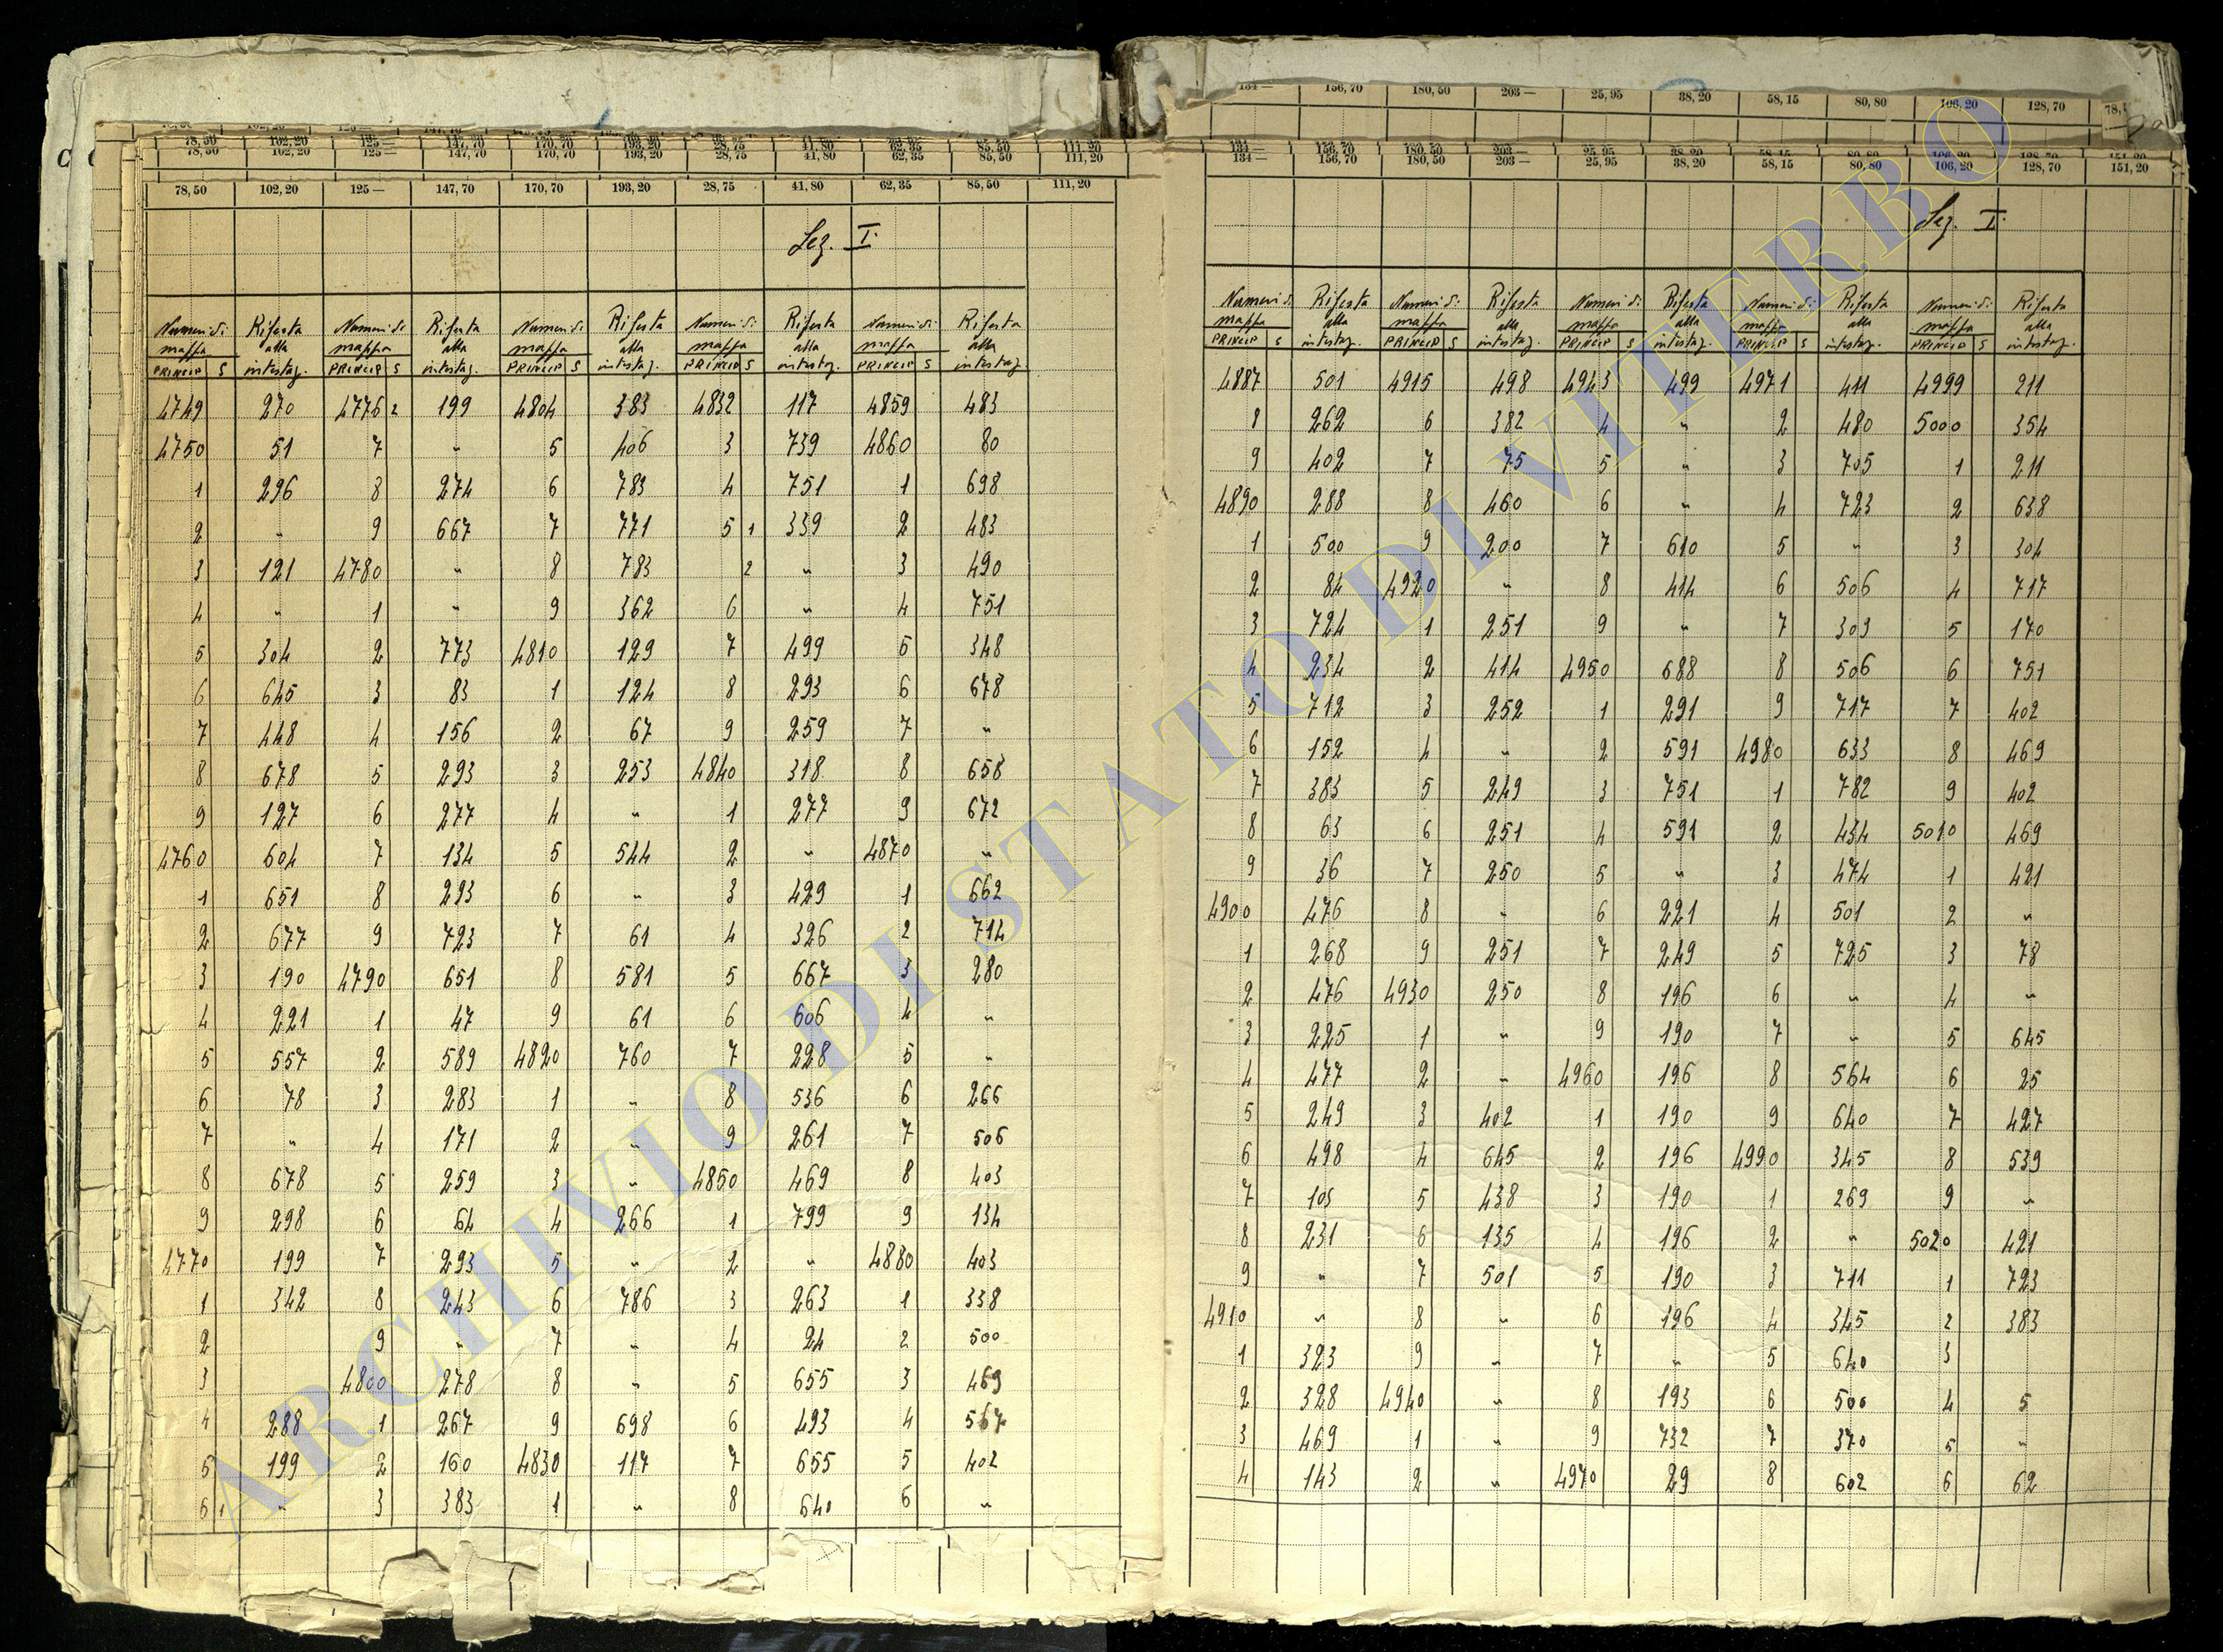 78,50 102,20 125— 147,70 170,70 193,20 28,75 41,80 62,35 85,50 111,20
78,50 102,20 125— 147,70 170,70 193,20 28,75 41,80 62,35 85,50 111,20
Sez. I.
Numeri di Riferta Numeri di Riferta Numeri di Riferta Numeri di Riferta Numeri di Riferta
mappa alla mappa alla mappa alla mappa alla mappa alla
PRINCIP S intestaz. PRINCIP S intestaz. PRINCIP S intestaz. PRINCIP S intestaz. PRINCIP S intestaz.
4749 270 4776 2 199 4804 383 4832 117 4859 483
4750 51 7 " 5 406 3 739 4860 80
1 296 8 274 6 783 4 751 1 698
2 " 9 667 7 771 5 1 339 2 483
3 121 4780 " 8 783 2 " 3 490
4 " 1 " 9 362 6 " 4 751
5 304 2 773 4810 129 7 499 5 348
6 645 3 83 1 124 8 293 6 678
7 448 4 156 2 67 9 259 7 "
8 678 5 293 3 253 4840 318 8 658
9 127 6 277 4 " 1 277 9 672
4760 604 7 134 5 544 2 " 4870 "
1 651 8 293 6 " 3 429 1 662
2 677 9 723 7 61 4 326 2 714
3 190 4790 651 8 581 5 667 3 280
4 221 1 47 9 61 6 606 4 "
5 557 2 589 4820 760 7 228 5 "
6 78 3 283 1 " 8 536 6 266
7 " 4 171 2 " 9 261 7 506
8 678 5 259 3 " 4850 469 8 403
9 298 6 64 4 266 1 799 9 134
4770 199 7 293 5 " 2 " 4880 403
1 342 8 243 6 786 3 263 1 338
2 9 " 7 " 4 24 2 500
3 4800 278 8 " 5 655 3 469
4 288 1 267 9 698 6 493 4 567
5 199 2 160 4830 117 7 655 5 402
6 1 " 3 383 1 " 8 640 6 "
134— 156,70 180,50 203— 25,95 38,20 58,15 80,80 106,20 128,70 78,
134— 156,70 180,50 203— 25,95 38,20 58,15 80,80 106,20 128,70 151,20
Sez. I.
Numeri di Riferta Numeri di Riferta Numeri di Riferta Numeri di Riferta Numeri di Riferta
mappa alla mappa alla mappa alla mappa alla mappa alla
PRINCIP S intestaz. PRINCIP S intestaz. PRINCIP S intestaz. PRINCIP S intestaz. PRINCIP S intestaz.
4887 501 4915 498 4943 499 4971 411 4999 211
8 262 6 382 4 " 2 480 5000 354
9 402 7 75 5 " 3 705 1 211
4890 288 8 460 6 " 4 723 2 638
1 500 9 200 7 610 5 " 3 304
2 84 4920 " 8 414 6 506 4 717
3 724 1 251 9 " 7 309 5 170
4 234 2 414 4950 688 8 506 6 751
5 712 3 252 1 291 9 717 7 402
6 152 4 " 2 591 4980 633 8 469
7 383 5 249 3 751 1 782 9 402
8 63 6 251 4 591 2 434 5010 469
9 36 7 250 5 " 3 474 1 421
4900 476 8 " 6 221 4 501 2 "
1 268 9 251 7 249 5 725 3 78
2 476 4930 250 8 196 6 " 4 "
3 225 1 " 9 190 7 " 5 645
4 477 2 " 4960 196 8 564 6 25
5 249 3 402 1 190 9 640 7 427
6 498 4 645 2 196 4990 345 8 539
7 105 5 438 3 190 1 269 9 "
8 231 6 135 4 196 2 " 5020 421
9 " 7 501 5 190 3 711 1 723
4910 " 8 " 6 196 4 345 2 383
1 323 9 " 7 " 5 640 3
2 328 4940 " 8 193 6 500 4 5
3 469 1 " 9 732 7 370 5 "
4 143 2 " 4970 29 8 602 6 62
ARCHIVIO DI STATO DI VITERBO